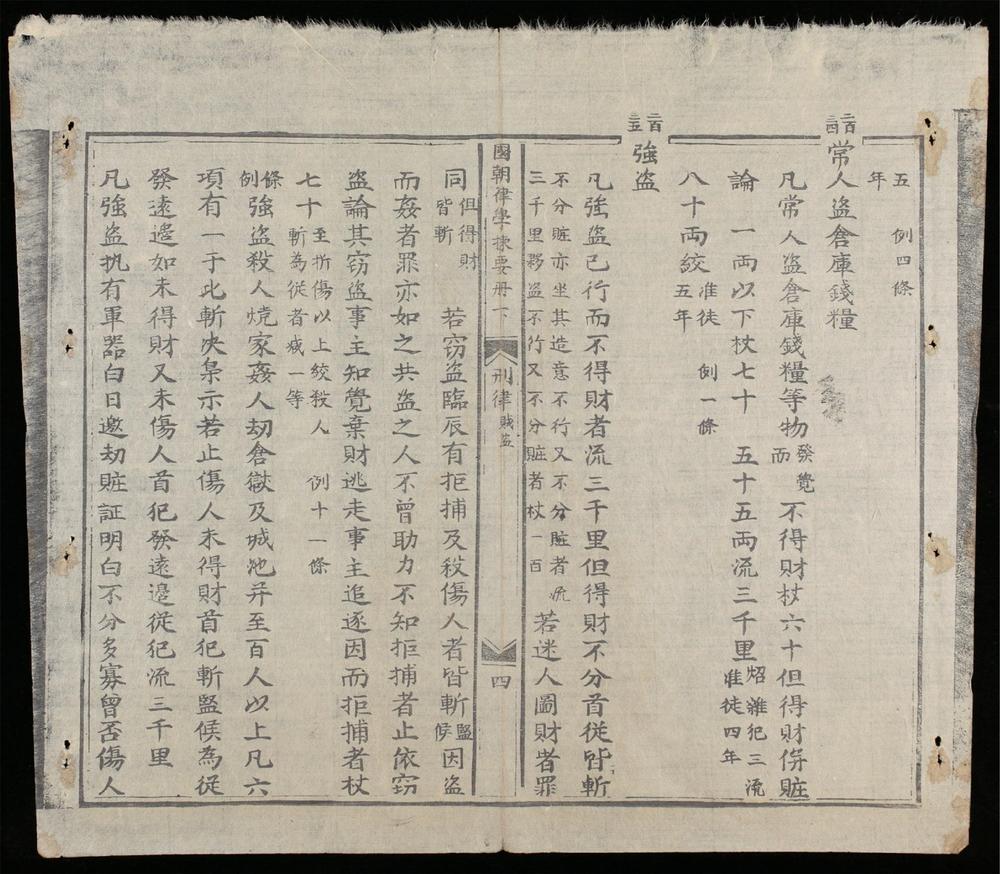 五 例四條
年
二百三四
常人盗倉庫錢糧
凡常人盗倉庫錢糧等物發覺而不得財杖六十但得財併賍
論一兩以下杖七十 五十五兩流三千里炤雜犯三流准徒四年
八十兩絞准徒五年 例一條
二百三五
強盗
凡強盗已行而不得財者流三千里但得財不分首從皆斬
不分賍亦坐其造意不行又不分賍者流三千里夥盗不行又不分賍者杖一百若迷人圖財者罪
國朝律學揀要册下 刑律賊盗 四
同但得財皆斬 若窃盗臨辰有拒捕及殺傷人者皆斬監候因盗
而姦者罪亦如之共盗之人不曾助力不知拒捕者止依窃
盗論其窃盗事主知覺棄財逃走事主追逐因而拒捕者杖
七十至折傷以上絞殺人斬為從者减一等 例十一條
條例強盗殺人燒家姦人刼倉獄及城池并至百人以上凡六
項有一于此斬决梟示若止傷人未得財首犯斬監候為從
發遠邉如未得財又未傷人首犯發遠邉從犯流三千里
凡強盗执有軍器白日邀刼賍証明白不分多寡曾否傷人